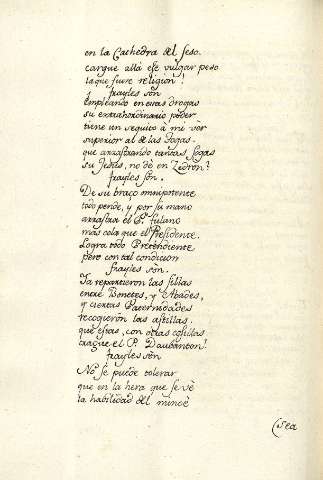 en la Cathedra del seso.
cargue allá esse vulgar peso
laque fuere religion!
frayles son
empleando en estas drogas
su extrahordinario poder
tiene un sequito á mi vér
superior al de las Togas.
que arrastrando tantas sogas
su Jesús, no dé en Zedron?
frayles son.
De su braço omnipotente
todo pende, y por su mano
arrastra el P.e fulano
mas cola que el Presidente.
Logra todo Pretendiente
pero con tal condicion
frayles son.
Ya repartieron las sillas
entre Bonetes, y Abades,
y ciertas Paternidades
recogieron las astillas.
que estas, con otras cosillas
trague el P. Daubanton!
frayles son
No se puede tolerar
que en la hera que se vé
la habilidad del
sea